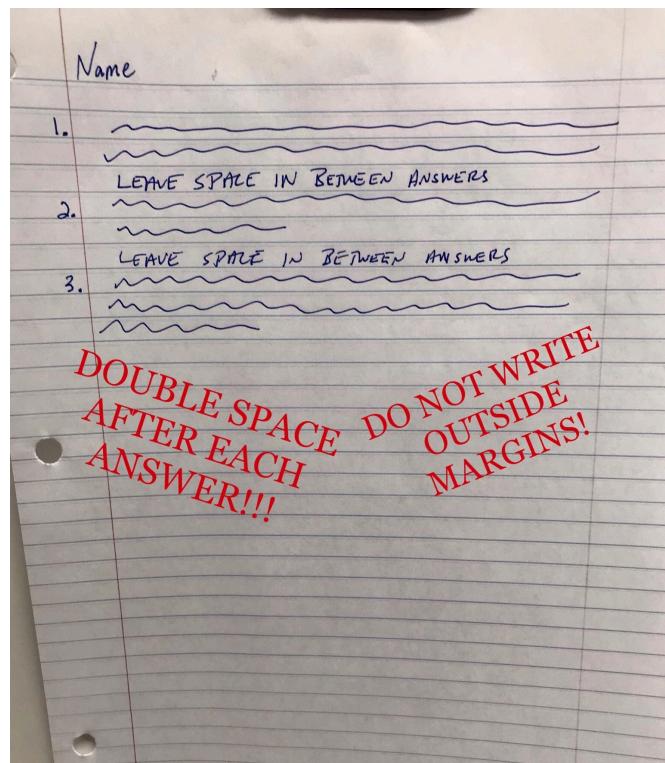 Name
1.
LEAVE SPACE IN BETWEEN ANSWERS
2.
LEAVE SPACE IN BETWEEN ANSWERS
3.
DOUBLE SPACE
AFTER EACH
ANSWER!!!
DO NOT WRITE
OUTSIDE
MARGINS!